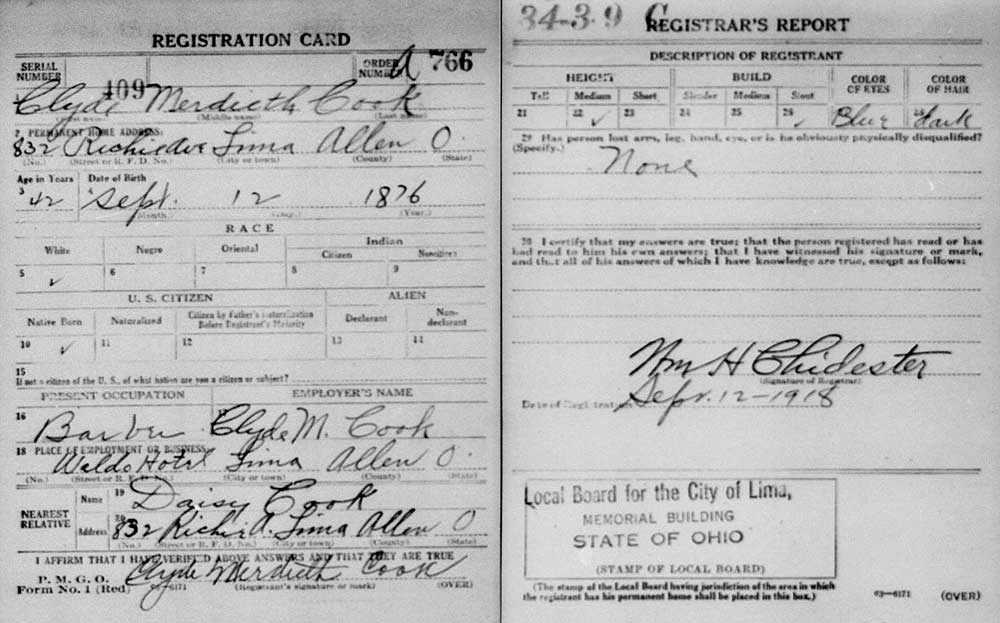 REGISTRATION CARD
SERIAL NUMBER 409
ORDER NUMBER A 766
1 Clyde Merdieth Cook
(First name) (Middle name) (Last name)
2 PERMANENT HOME ADDRESS:
832 Richie Ave Lima Allen O
(No.) (Street or R. F. D. No.) (City or town) (County) (State)
Age in Years Date of Birth
3 42 4 Sept. 12 1876
(Month.) (Day.) (Year.)
RACE
White Negro Oriental Indian
Citizen Noncitizen
5 ✓ 6 7 8 9
U. S. CITIZEN ALIEN
Native Born Naturalized Citizen by Father's Naturalization Before Registrant's Majority Declarant Non-declarant
10 ✓ 11 12 13 14
15
If not a citizen of the U. S., of what nation are you a citizen or subject?
PRESENT OCCUPATION EMPLOYER'S NAME
16 Barber Clyde M. Cook
18 PLACE OF EMPLOYMENT OR BUSINESS:
Waldo Hotel Lima Allen O.
(No.) (Street or R. F. D. No.) (City or town) (County) (State)
NEAREST RELATIVE
Name 19 Daisy Cook
Address 20 832 Richie A. Lima Allen O
(No.) (Street or R. F. D. No.) (City or town) (County) (State)
I AFFIRM THAT I HAVE VERIFIED ABOVE ANSWERS AND THAT THEY ARE TRUE
P. M. G. O.
Form No. 1 (Red)
Clyde Merdieth Cook
03-6171 (Registrant's signature or mark) (OVER)
34-3-9 C
REGISTRAR'S REPORT
DESCRIPTION OF REGISTRANT
HEIGHT BUILD COLOR OF EYES COLOR OF HAIR
Tall Medium Short Slender Medium Stout
21 22 ✓ 23 24 25 26 ✓ Blue 28 dark
29 Has person lost arm, leg, hand, eye, or is he obviously physically disqualified?
(Specify.) None
30 I certify that my answers are true; that the person registered has read or has
had read to him his own answers; that I have witnessed his signature or mark,
and that all of his answers of which I have knowledge are true, except as follows:
Wm H Chidester
(Signature of Registrar)
Date of Registration Sept. 12-1918
Local Board for the City of Lima,
MEMORIAL BUILDING
STATE OF OHIO
(STAMP OF LOCAL BOARD)
(The stamp of the Local Board having jurisdiction of the area in which
the registrant has his permanent home shall be placed in this box.)
03-6171 (OVER)